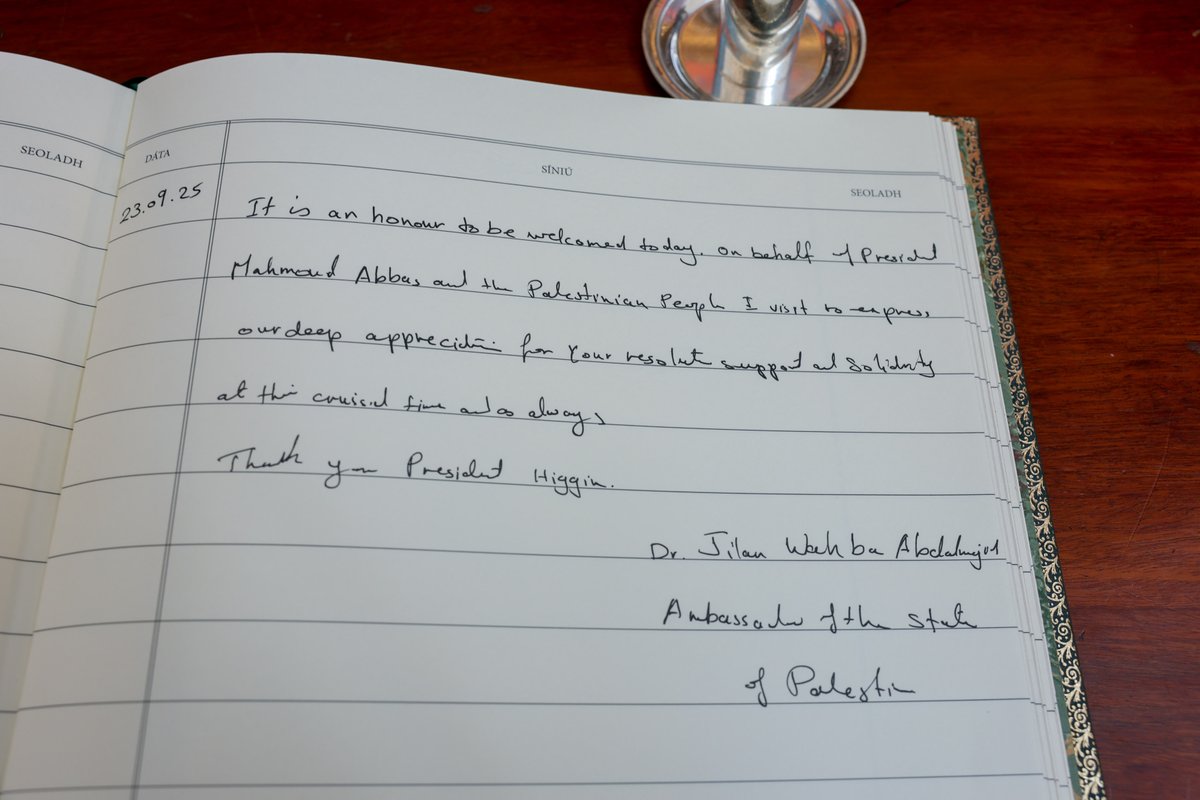 SEOLADH
DÁTA
SÍNIÚ
SEOLADH
23.09.25
It is an honour to be welcomed today, on behalf of President
Mahmoud Abbas and the Palestinian People I visit to express
our deep appreciation for your resolute support and Solidarity
at this crucial time and as always
Thank you President Higgin.
Dr. Jilan Wahba Abdalmajid
Ambassador of the State
of Palestine